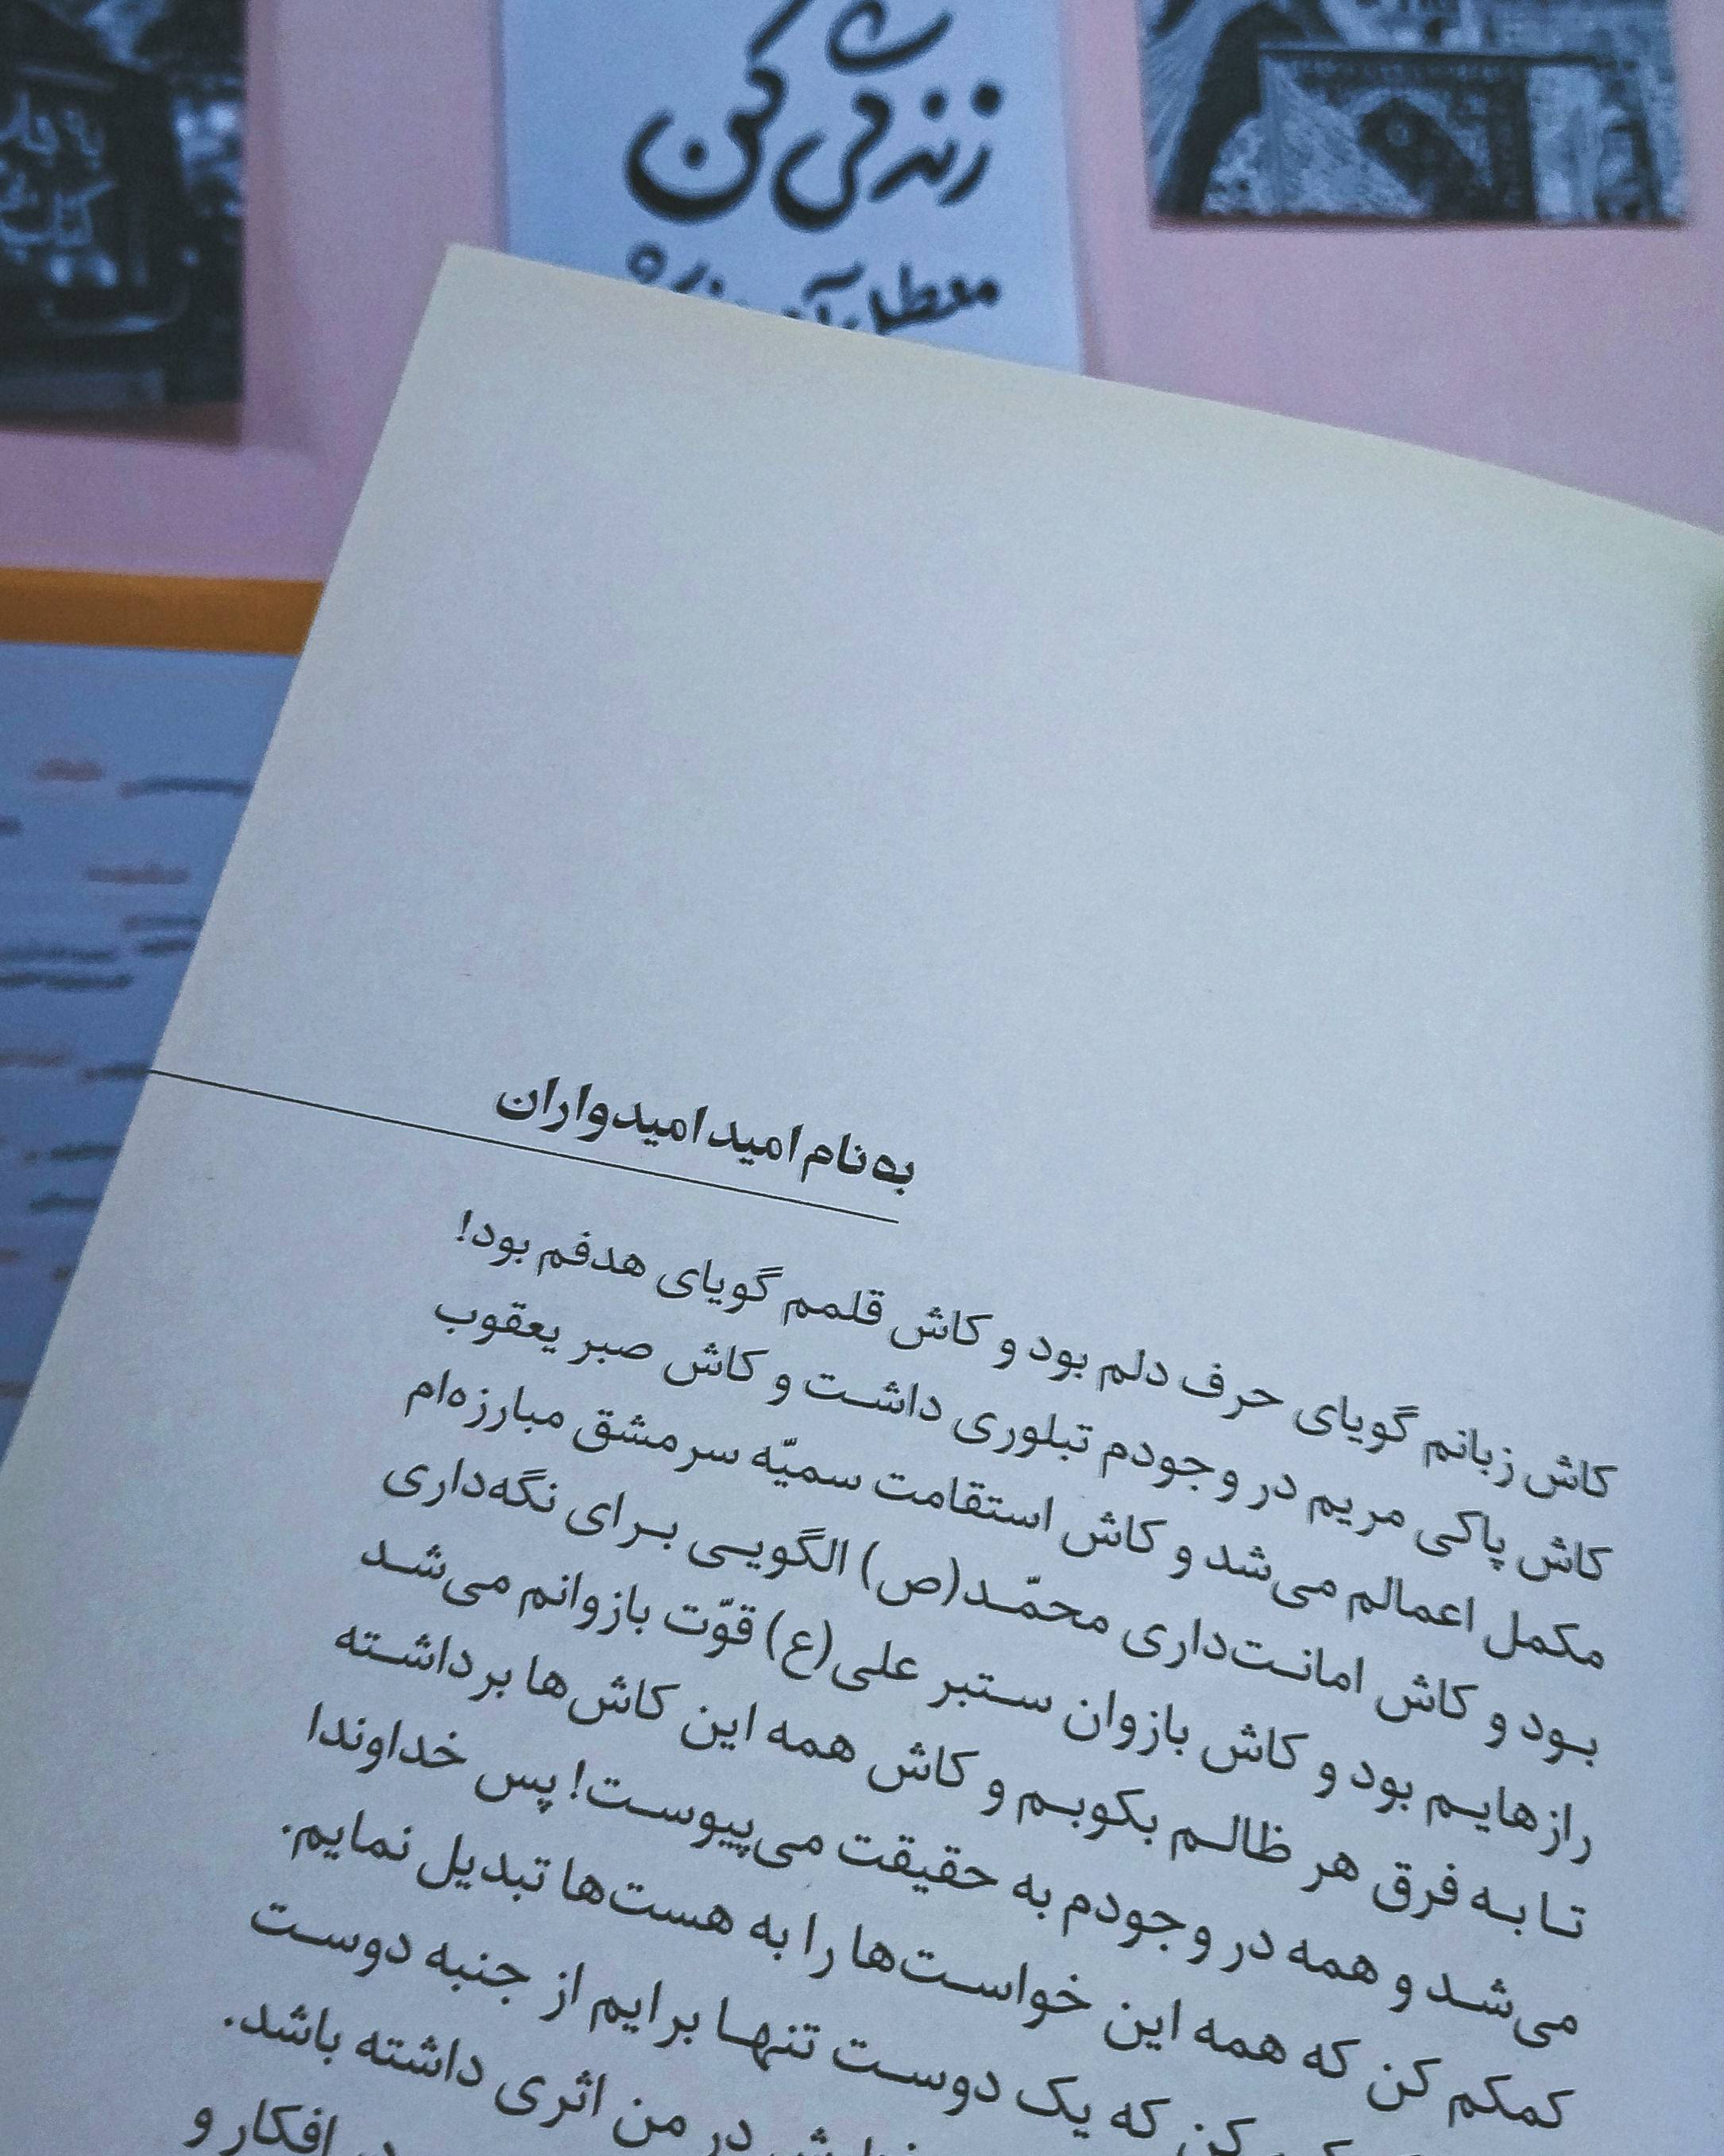 زندگی کن
معطل
به نام امید امیدواران
کاش زبانم گویای حرف دلم بود و کاش قلمم گویای هدفم بود!
کاش پاکی مریم در وجودم تبلوری داشت و کاش صبر یعقوب
مکمل اعمالم می‌شد و کاش استقامت سمیّه سرمشق مبارزه‌ام
بود و کاش امانت‌داری محمّد(ص) الگویی برای نگه‌داری
رازهایم بود و کاش بازوان ستبر علی(ع) قوّت بازوانم می‌شد
تا به فرق هر ظالم بکوبم و کاش همه این کاش‌ها برداشته
می‌شد و همه در وجودم به حقیقت می‌پیوست! پس خداوندا
کمکم کن که همه این خواست‌ها را به هست‌ها تبدیل نمایم.
کن که یک دوست تنها برایم از جنبه دوست
در من اثری داشته باشد.
افکار و